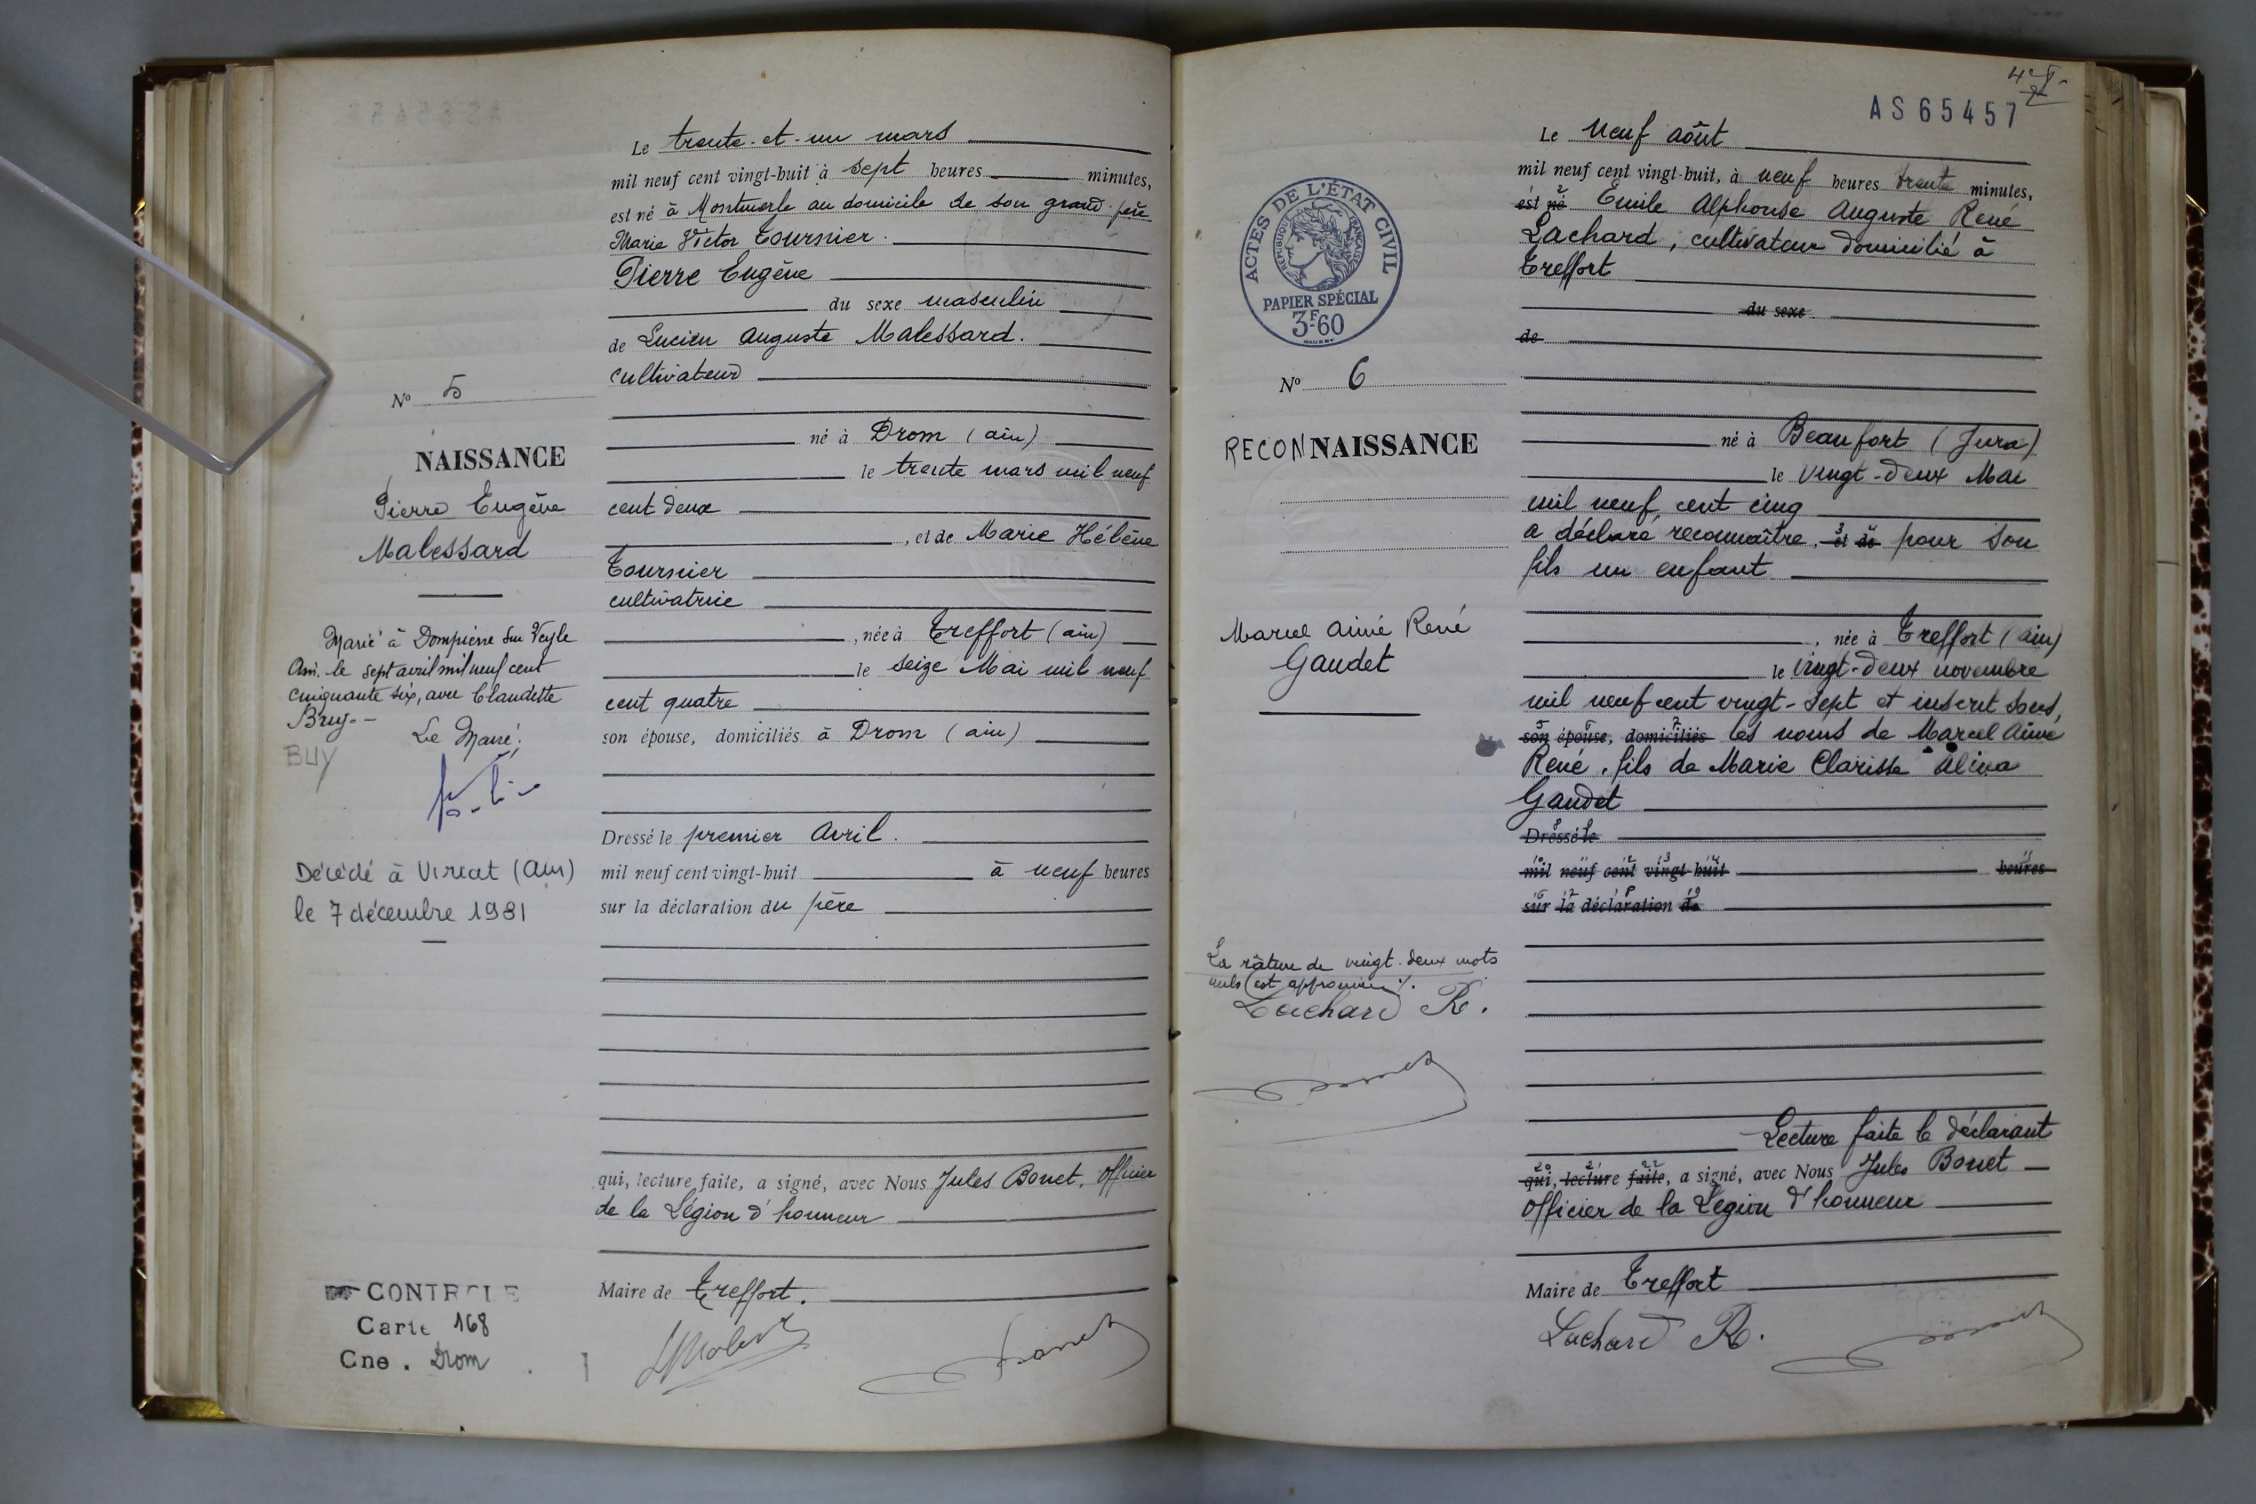 Le trente-et-un mars
mil neuf cent vingt-huit à sept heures minutes,
est né à Montmerle au domicile de son grand-père
Marie Victor Tournier.
Pierre Eugène
du sexe masculin
de Lucien Auguste Malessard.
cultivateur
N° 5
né à Drom (ain)
NAISSANCE
le trente mars mil neuf
Pierre Eugène
cent deux
Malessard
, et de Marie Hélène
Tournier
cultivatrice
Marié à Dompierre sur Veyle
, née à Treffort (ain)
Ain. le sept avril mil neuf cent
le seize Mai mil neuf
cinquante six, avec Claudette
cent quatre
Bruy.-
Le Maire;
son épouse, domiciliés à Drom (ain)
BUY
Dressé le premier Avril.
Décédé à Viriat (Ain)
mil neuf cent vingt-huit à neuf heures
le 7 décembre 1981
sur la déclaration du père
qui, lecture faite, a signé, avec Nous Jules Bonet, Officier
de la Légion d'honneur
Maire de Treffort.
CONTROLE
Carte 168
Cne. Drom
AS65457
Le neuf août
mil neuf cent vingt-huit, à neuf heures trente minutes,
est né Emile Alphonse Auguste René
Lachard, cultivateur domicilié à
Treffort
du sexe
de
ACTES DE L'ÉTAT CIVIL
RÉPUBLIQUE FRANÇAISE
PAPIER SPÉCIAL
3F60
N° 6
RECONNAISSANCE
né à Beaufort (Jura)
le vingt-deux Mai
mil neuf cent cinq
a déclaré reconnaître, et de pour son
fils un enfant
Marcel Aimé René
Gaudet
, née à Treffort (ain)
le vingt-deux novembre
mil neuf cent vingt-sept et inscrit sous,
son épouse, domiciliés les noms de Marcel Aimé
René, fils de Marie Clarisse Alina
Gaudet
Dressé le
mil neuf cent vingt-huit heures
sur la déclaration de
La râture de vingt-deux mots
nuls est approuvée
Lachard R.
Lecture faite le déclarant
qui, lecture faite, a signé, avec Nous Jules Bonet
Officier de la Légion d'honneur
Maire de Treffort
Lachard R.